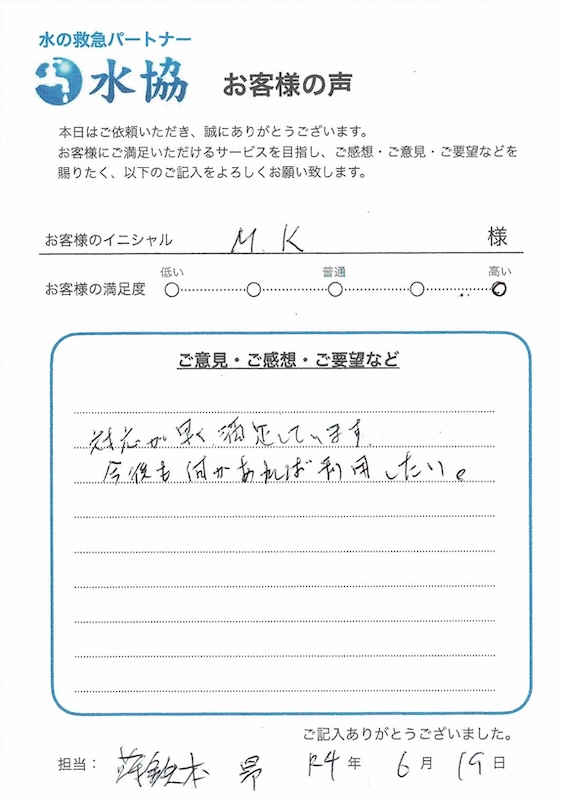 水の救急パートナー
水協
お客様の声
本日はご依頼いただき、誠にありがとうございます。
お客様にご満足いただけるサービスを目指し、ご感想・ご意見・ご要望などを
賜りたく、以下のご記入をよろしくお願い致します。
お客様のイニシャル M.K 様
低い 普通 高い
お客様の満足度
ご意見・ご感想・ご要望など
対応が早く満足しています。
今後も何かあれば利用したい。
ご記入ありがとうございました。
担当： 本 昴 R4年 6月 19日